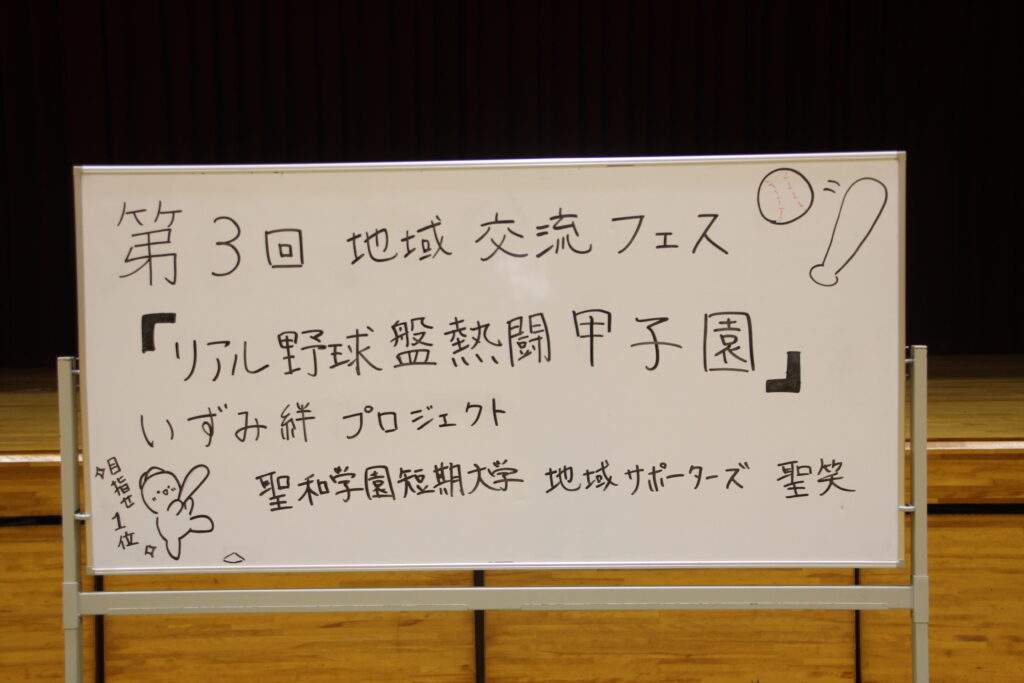 第3回 地域 交流 フェス
『リアル野球盤熱闘甲子園』
いずみ絆 プロジェクト
聖和学園短期大学 地域サポーターズ 聖笑
目指せ1位